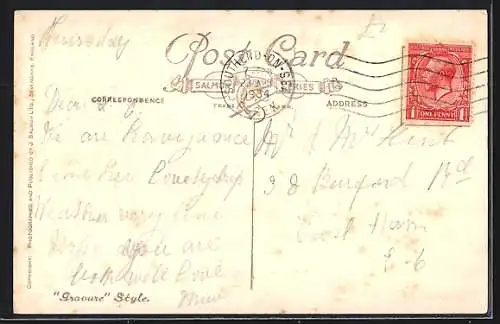 Thursday
Post Card
SALMON SERIES
TRADE MARK
SOUTHEND-ON-SEA
CORRESPONDENCE
ADDRESS
ONE PENNY
Dear
We are Having a nice
time Here Lovely trip
Weather very fine
Hope you are
both well Love
Mr & Mrs Hirst
98 Burford Rd
East Ham
E-6
"Gravure" Style.
COPYRIGHT. PHOTOGRAPHED AND PUBLISHED BY J. SALMON LTD., SEVENOAKS, ENGLAND